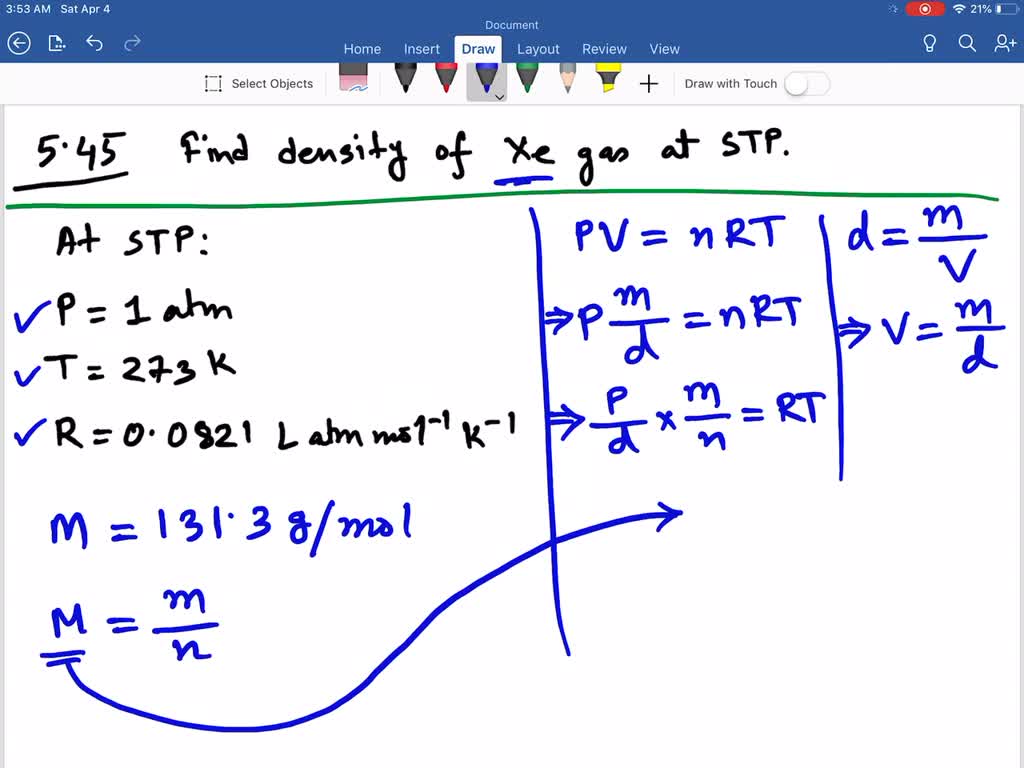 3:53 AM Sat Apr 4
21%
Document
Home Insert Draw Layout Review View
Select Objects
Draw with Touch
5.45 Find density of Xe gas at STP.
At STP:
✓ P = 1 atm
✓ T = 273 K
✓ R = 0.0821 L atm mol⁻¹ K⁻¹
M = 131.3 g/mol
M = m/n
PV = nRT
⇒ P m/d = nRT
⇒ P/d × m/n = RT
d = m/V
⇒ V = m/d